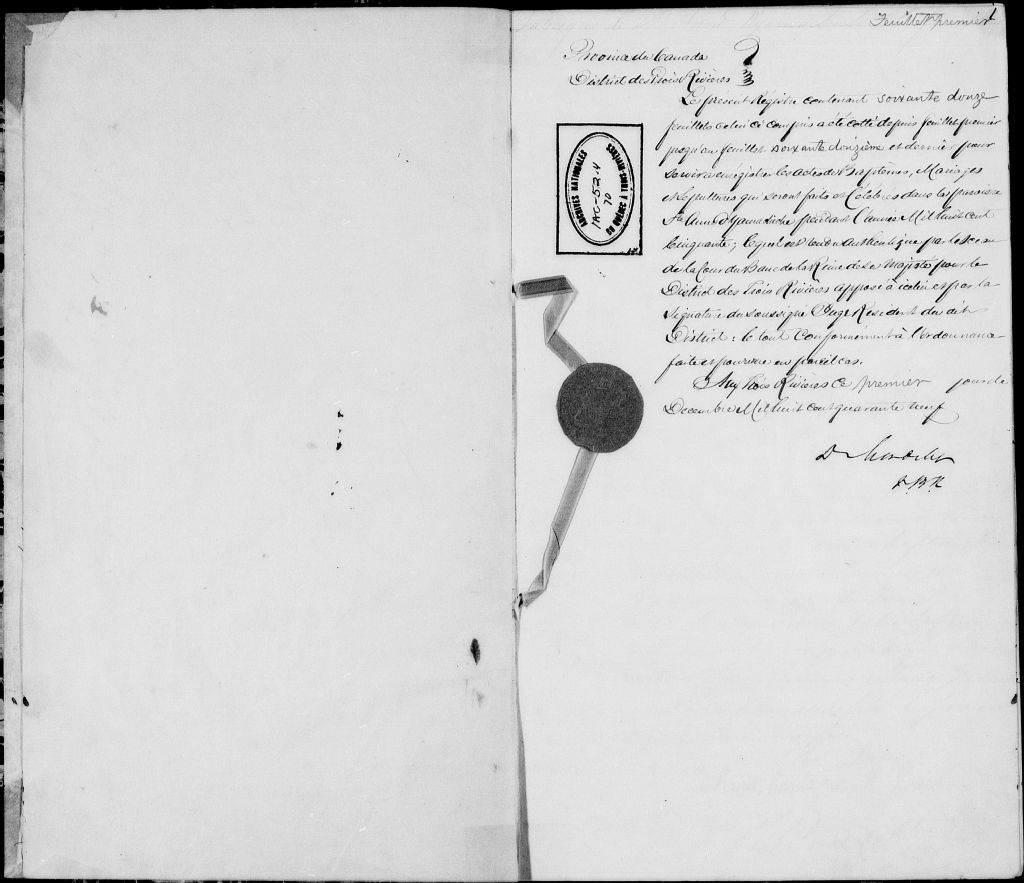 Feuillet premier
Province du Canada
District des Trois Rivières
Le présent Régistre contenant soixante douze
feuillets celui ci compris a été cotté depuis feuillet premier
jusqu'au feuillet soixante douzième et dernier pour
servir à enregistrer les actes de Baptêmes, Mariages
et Sépultures qui seront faits et Célébrés dans la paroisse
Ste Anne D'Yamachiche pendant l'année Mil huit cent
Cinquante; lequel est rendu authentique par le sceau
de la Cour du Banc de la Reine de Sa Majesté pour le
District des Trois Rivières apposé à icelui et par la
Signature du soussigné Juge Resident du dit
District: le tout Conformément à l'ordonnance
faite et pourvue en pareil cas.
Aux Trois Rivières Ce premier jour de
Decembre Mil huit cent quarante neuf
ARCHIVES NATIONALES
DU QUÉBEC À TROIS-RIVIÈRES
70